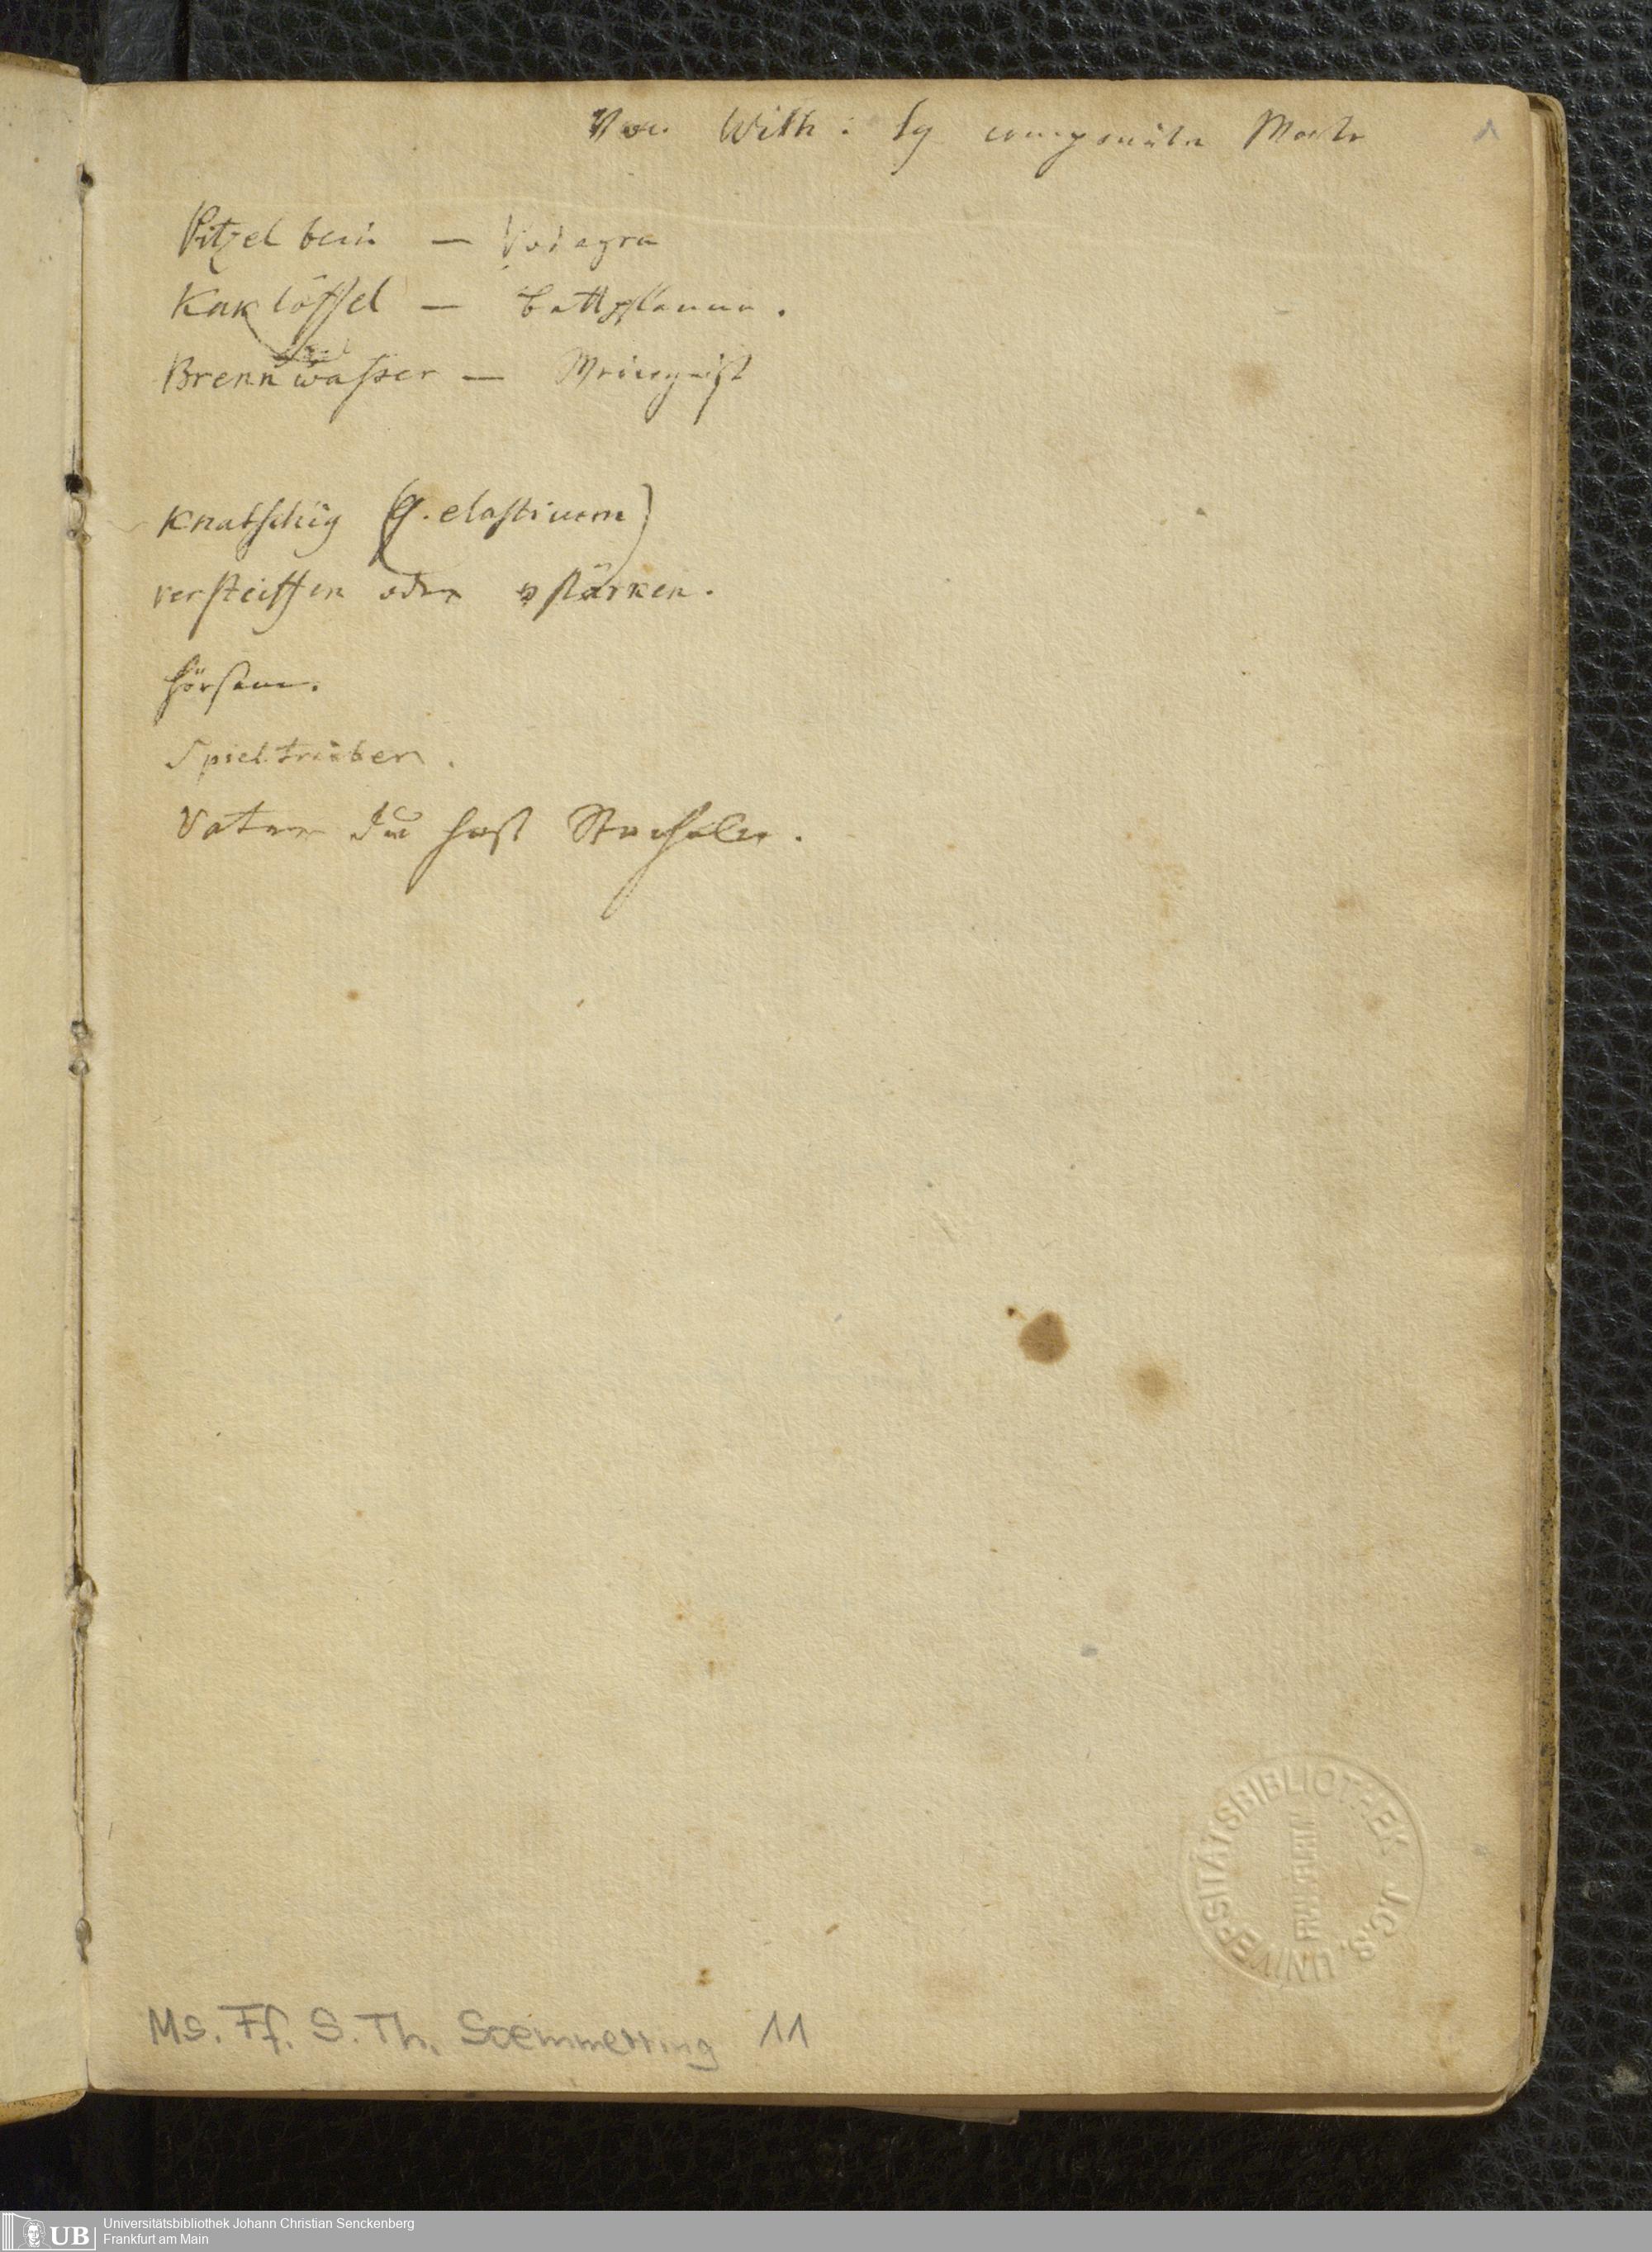 Von Wilh: Sg componirte Worte
1
Pitzelbein — Podagra
Kaklöffel — Bettpfanne.
Brennwasser — Weingeist
Knatschig (g. elasticum)
versteiffen oder stärken.
hörsam.
Spieltrieber.
Vater du hast Stacheln.
UNIVERSITÄTSBIBLIOTHEK J.C.S.
FRANKFURT/M.
Ms. Ff. S. Th. Soemmerring 11
UB Universitätsbibliothek Johann Christian Senckenberg
Frankfurt am Main